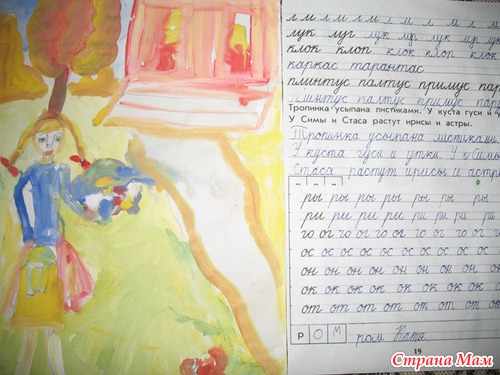 лм лм лм лм лм м л м
лук луг лук лук лук
клок клоп клок клоп клок
каркас тарантас
плинтус палтус примус пар
плинтус палтус примус пар
Тропинка усыпана листиками. У куста гуси и
У Симы и Стаса растут ирисы и астры.
Тропинка усыпана листиками.
У куста гуси и утки. У Симы
Стаса растут ирисы и астр
ры ры ры ры ры ры ры
ри ри ри ри ри ри ри
го ог го ог го ог го ог го ог
ос ос ос ос ос ос ос ос ос
он он он он он он он он
ок ок ок ок ок ок ок ок ок
от от от от от от от от
р о м ром Катя
19
Страна Мам